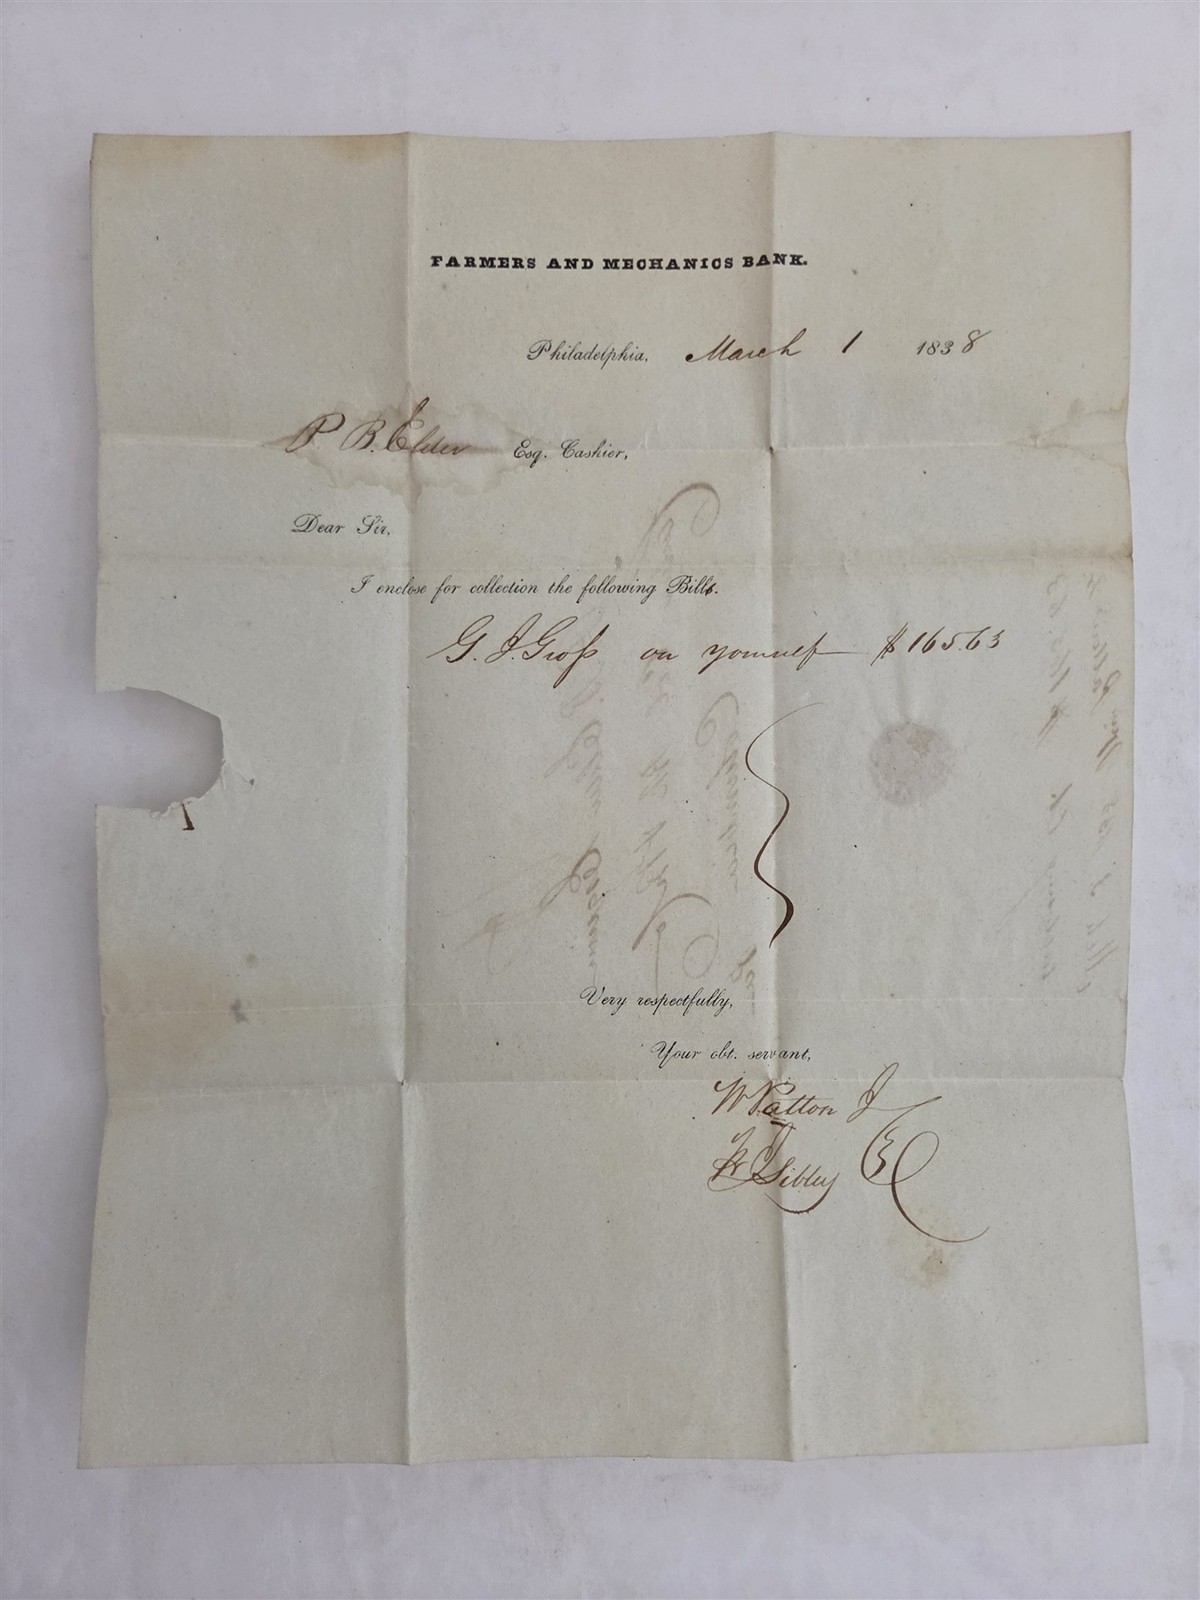 FARMERS AND MECHANICS BANK.
Philadelphia, March 1 1838
P. B. Elder Esq. Cashier,
Dear Sir,
I enclose for collection the following Bills.
G. J. Groſs on yourself $165.63
Very respectfully,
Your obt. servant,
W Patton J
Sibley